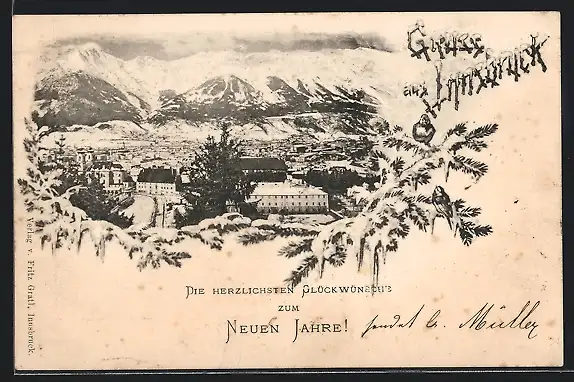 Gruss
aus Innsbruck
DIE HERZLICHSTEN GLÜCKWÜNSCHE
ZUM
NEUEN JAHRE!
sendet G. Müller
Verlag v. Fritz Gratl, Innsbruck.